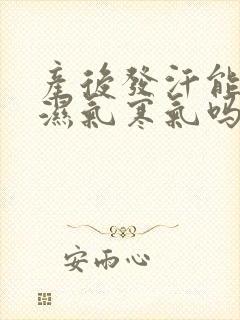 產後發汗能
濕氣寒氣嗎
安雨心